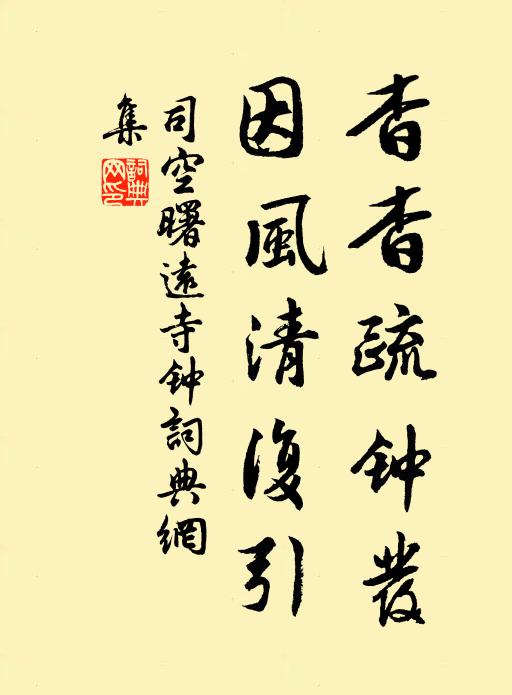 杳杳疏钟發
因風清復引
司空曙遠寺钟詞典網
集
詞典網印